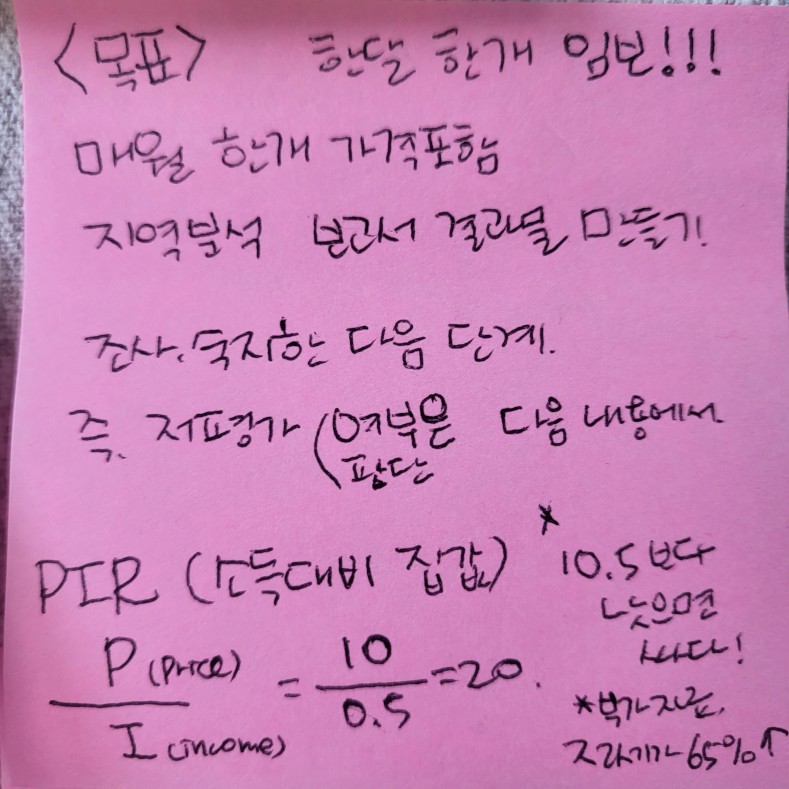 <목표> 한달 한개 임보!!!
매월 한개 가격포함
지역분석 보고서 결과물 만들기!
조사.숙지한 다음 단계.
즉. 저평가 (여부은 다음 내용에서
판단
PIR (소득대비 집값)
* 10.5보다
낮으면
싸다!
P (Price)
I (income)
= 10 / 0.5 = 20.
*부가지표.
지라기가 65%↑